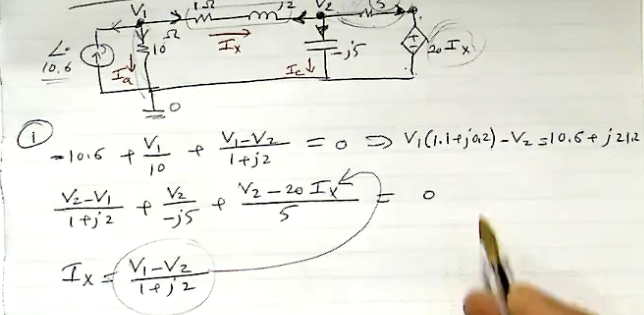 V₁ 1Ω j2 V₂ 5
10Ω Ix -j5 20 Ix
10.6 Ia Ic
0
① -10.6 + V₁/10 + (V₁-V₂)/(1+j2) = 0 ⇒ V₁(1.1+j0.2) - V₂ = 10.6 + j21.2
(V₂-V₁)/(1+j2) + V₂/(-j5) + (V₂-20 Ix)/5 = 0
Ix = (V₁-V₂)/(1+j2)